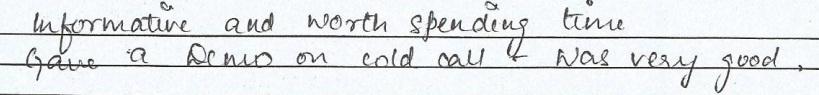 Informative and worth spending time
Gave a Demo on cold call & was very good.